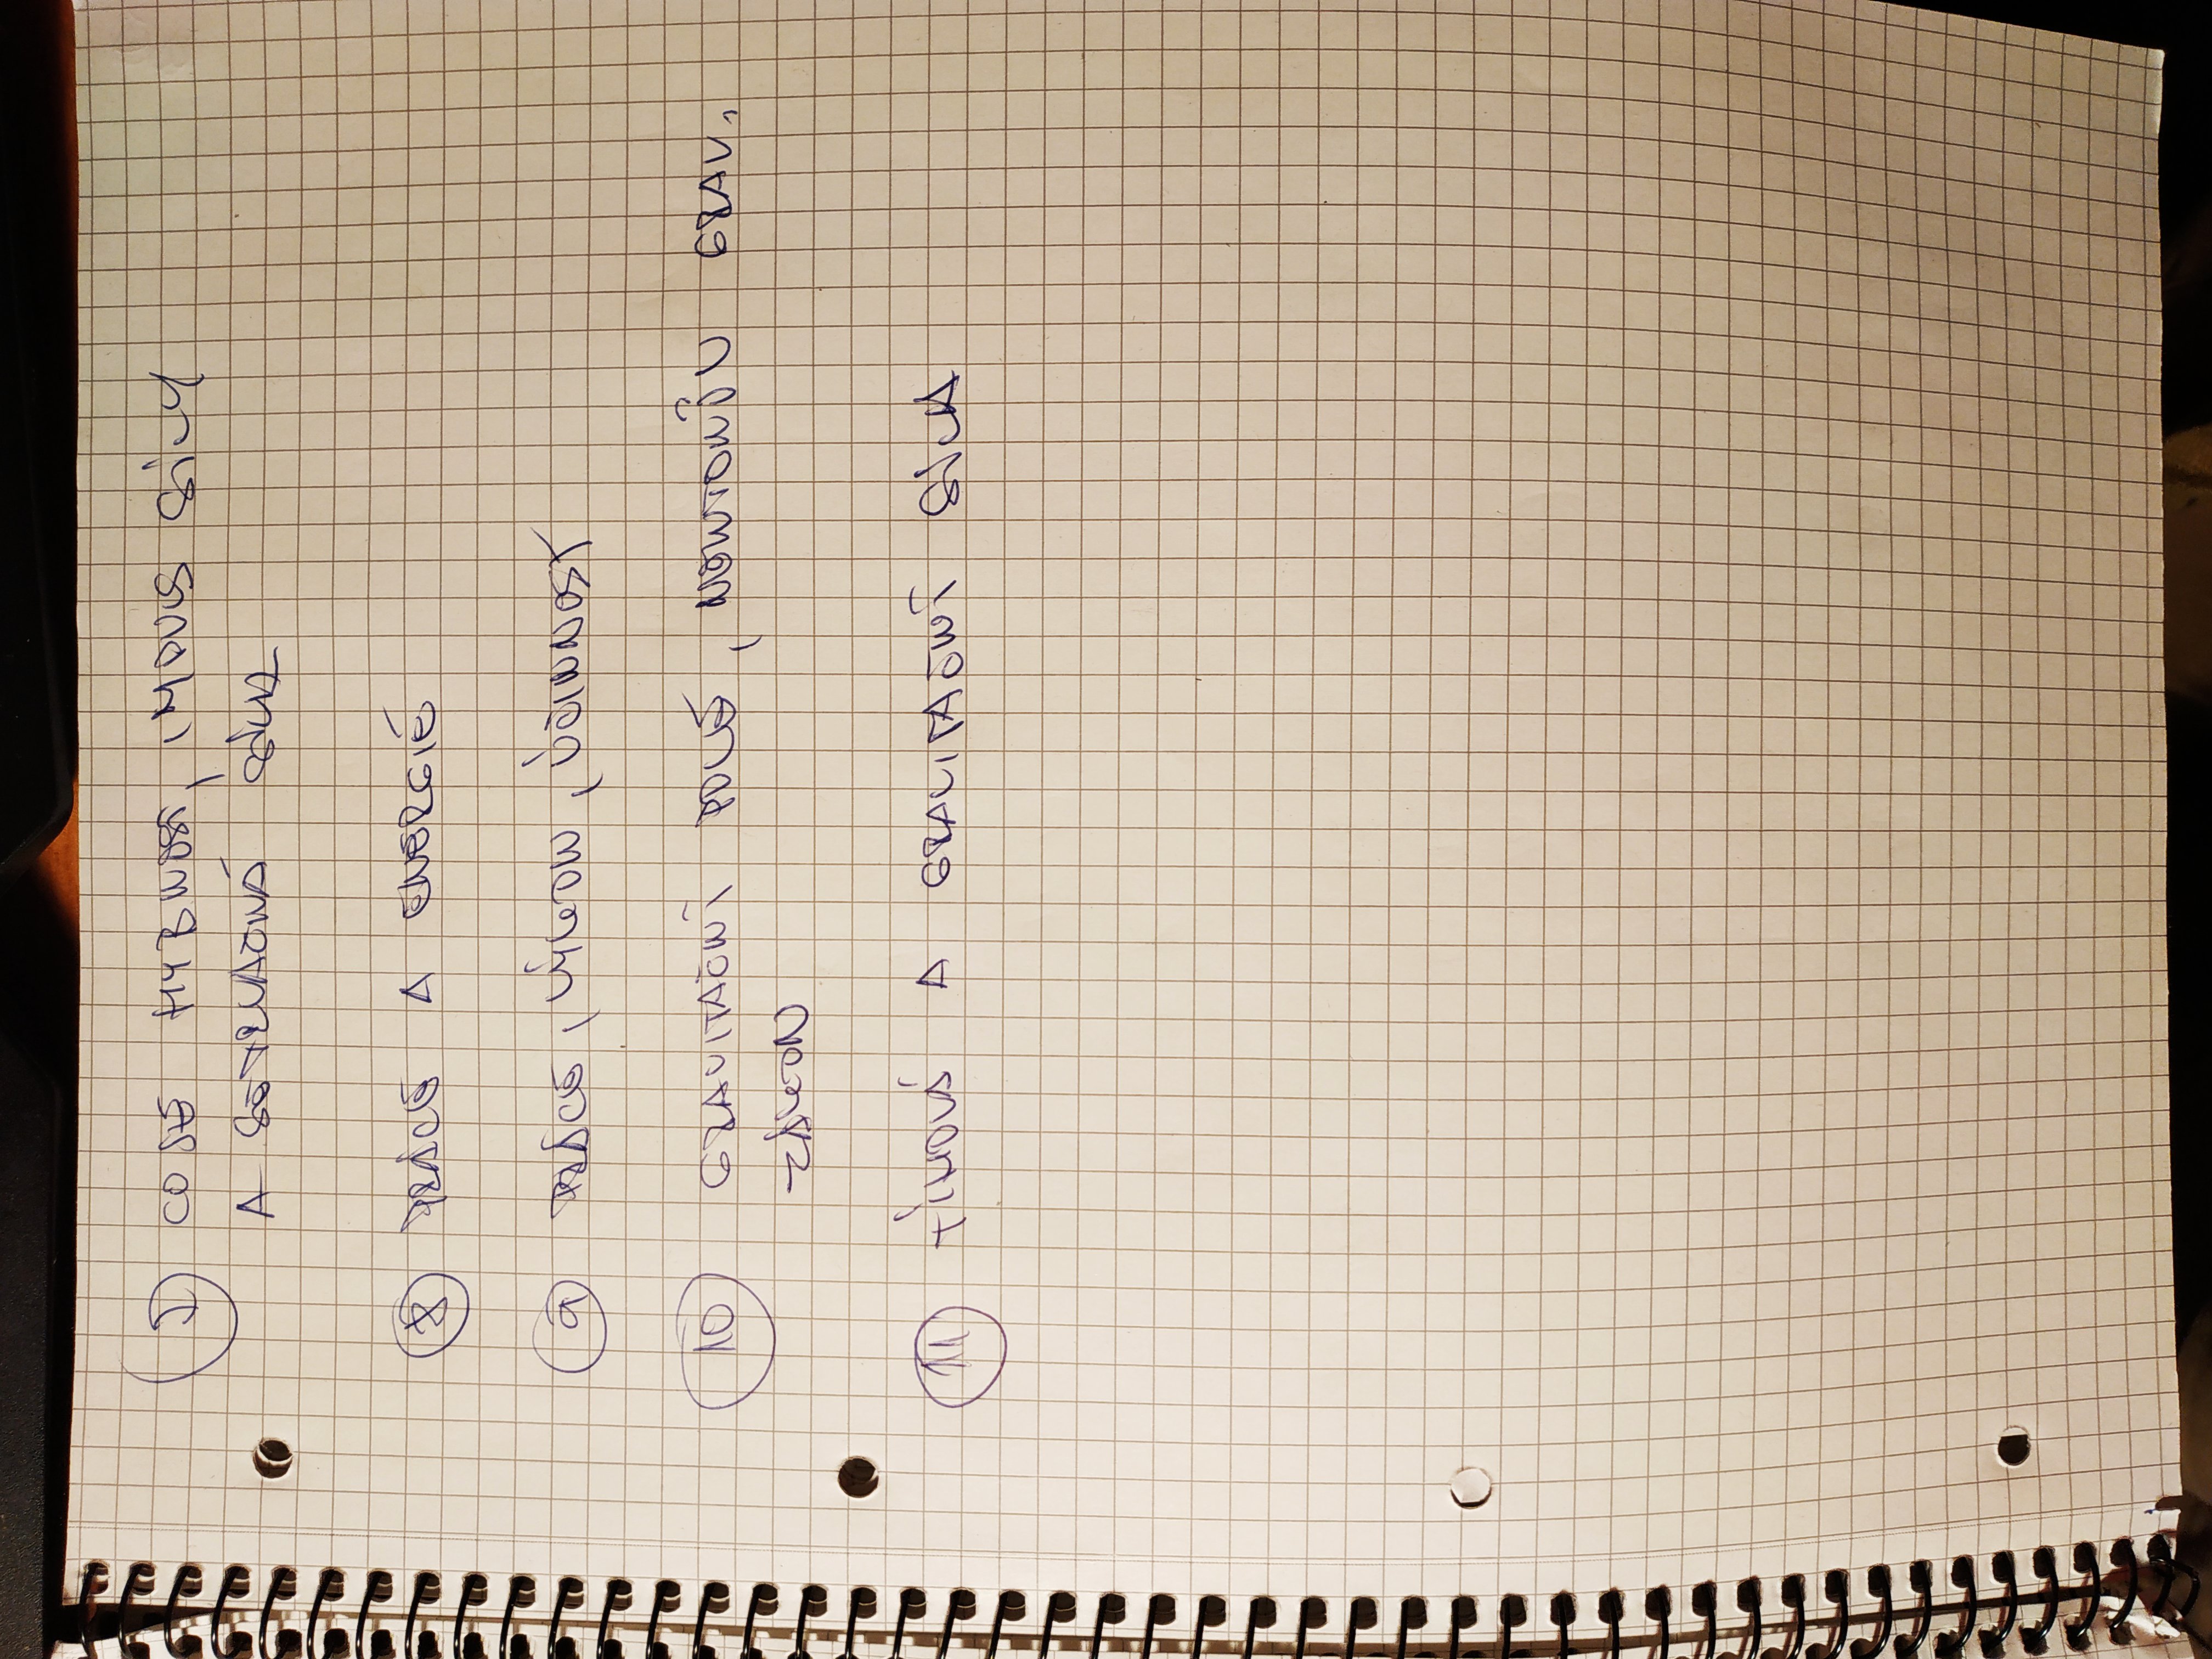 7 CO JE HYBNOST, IMPULS SÍLY
A SETRVAČNÁ SÍLA
8 PRÁCE A ENERGIE
9 PRÁCE, VÝKON, ÚČINNOST
10 GRAVITAČNÍ POLE, NEWTONŮV GRAV.
ZÁKON
11 TÍHOVÁ A GRAVITAČNÍ SÍLA